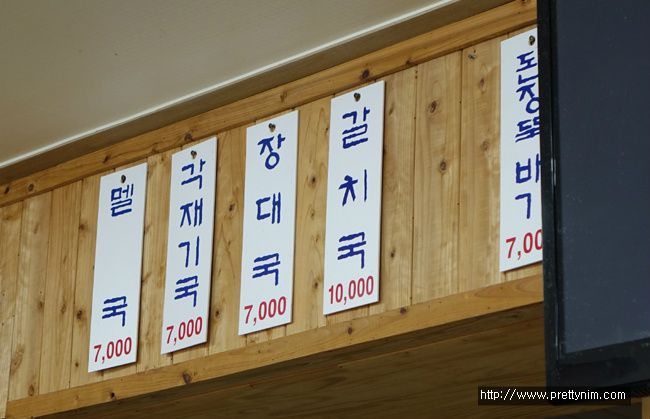 멜국
7,000
각재기국
7,000
장대국
7,000
갈치국
10,000
http://www.prettynim.com